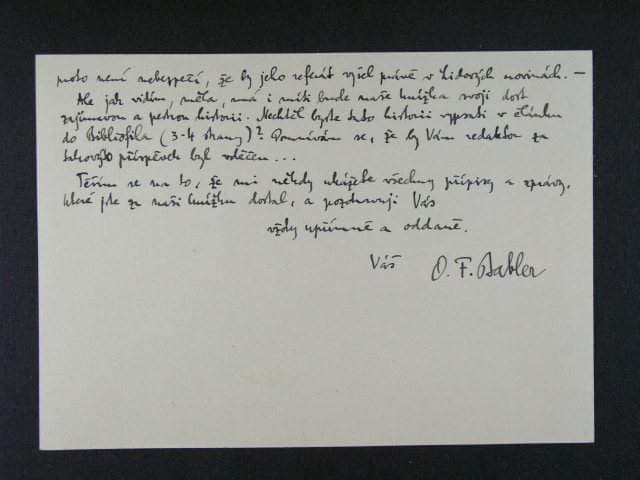 proto není nebezpečí, že by jeho referát vyšel právě v Lidových novinách. —
Ale jak vidím, měla, má i míti bude naše knížka svoji dost
zajímavou a pestrou historii. Nechtěl byste tuto historii vypsati v článku
do Bibliofila (3-4 strany)? Domnívám se, že by Vám redaktor za
takovýto příspěvek byl vděčen...
Těším se na to, že mi někdy ukážete všechny přípisy a zprávy,
které jste za naši knížku dostal, a pozdravuji Vás
vždy upřímně a oddaně.
Váš O. F. Babler